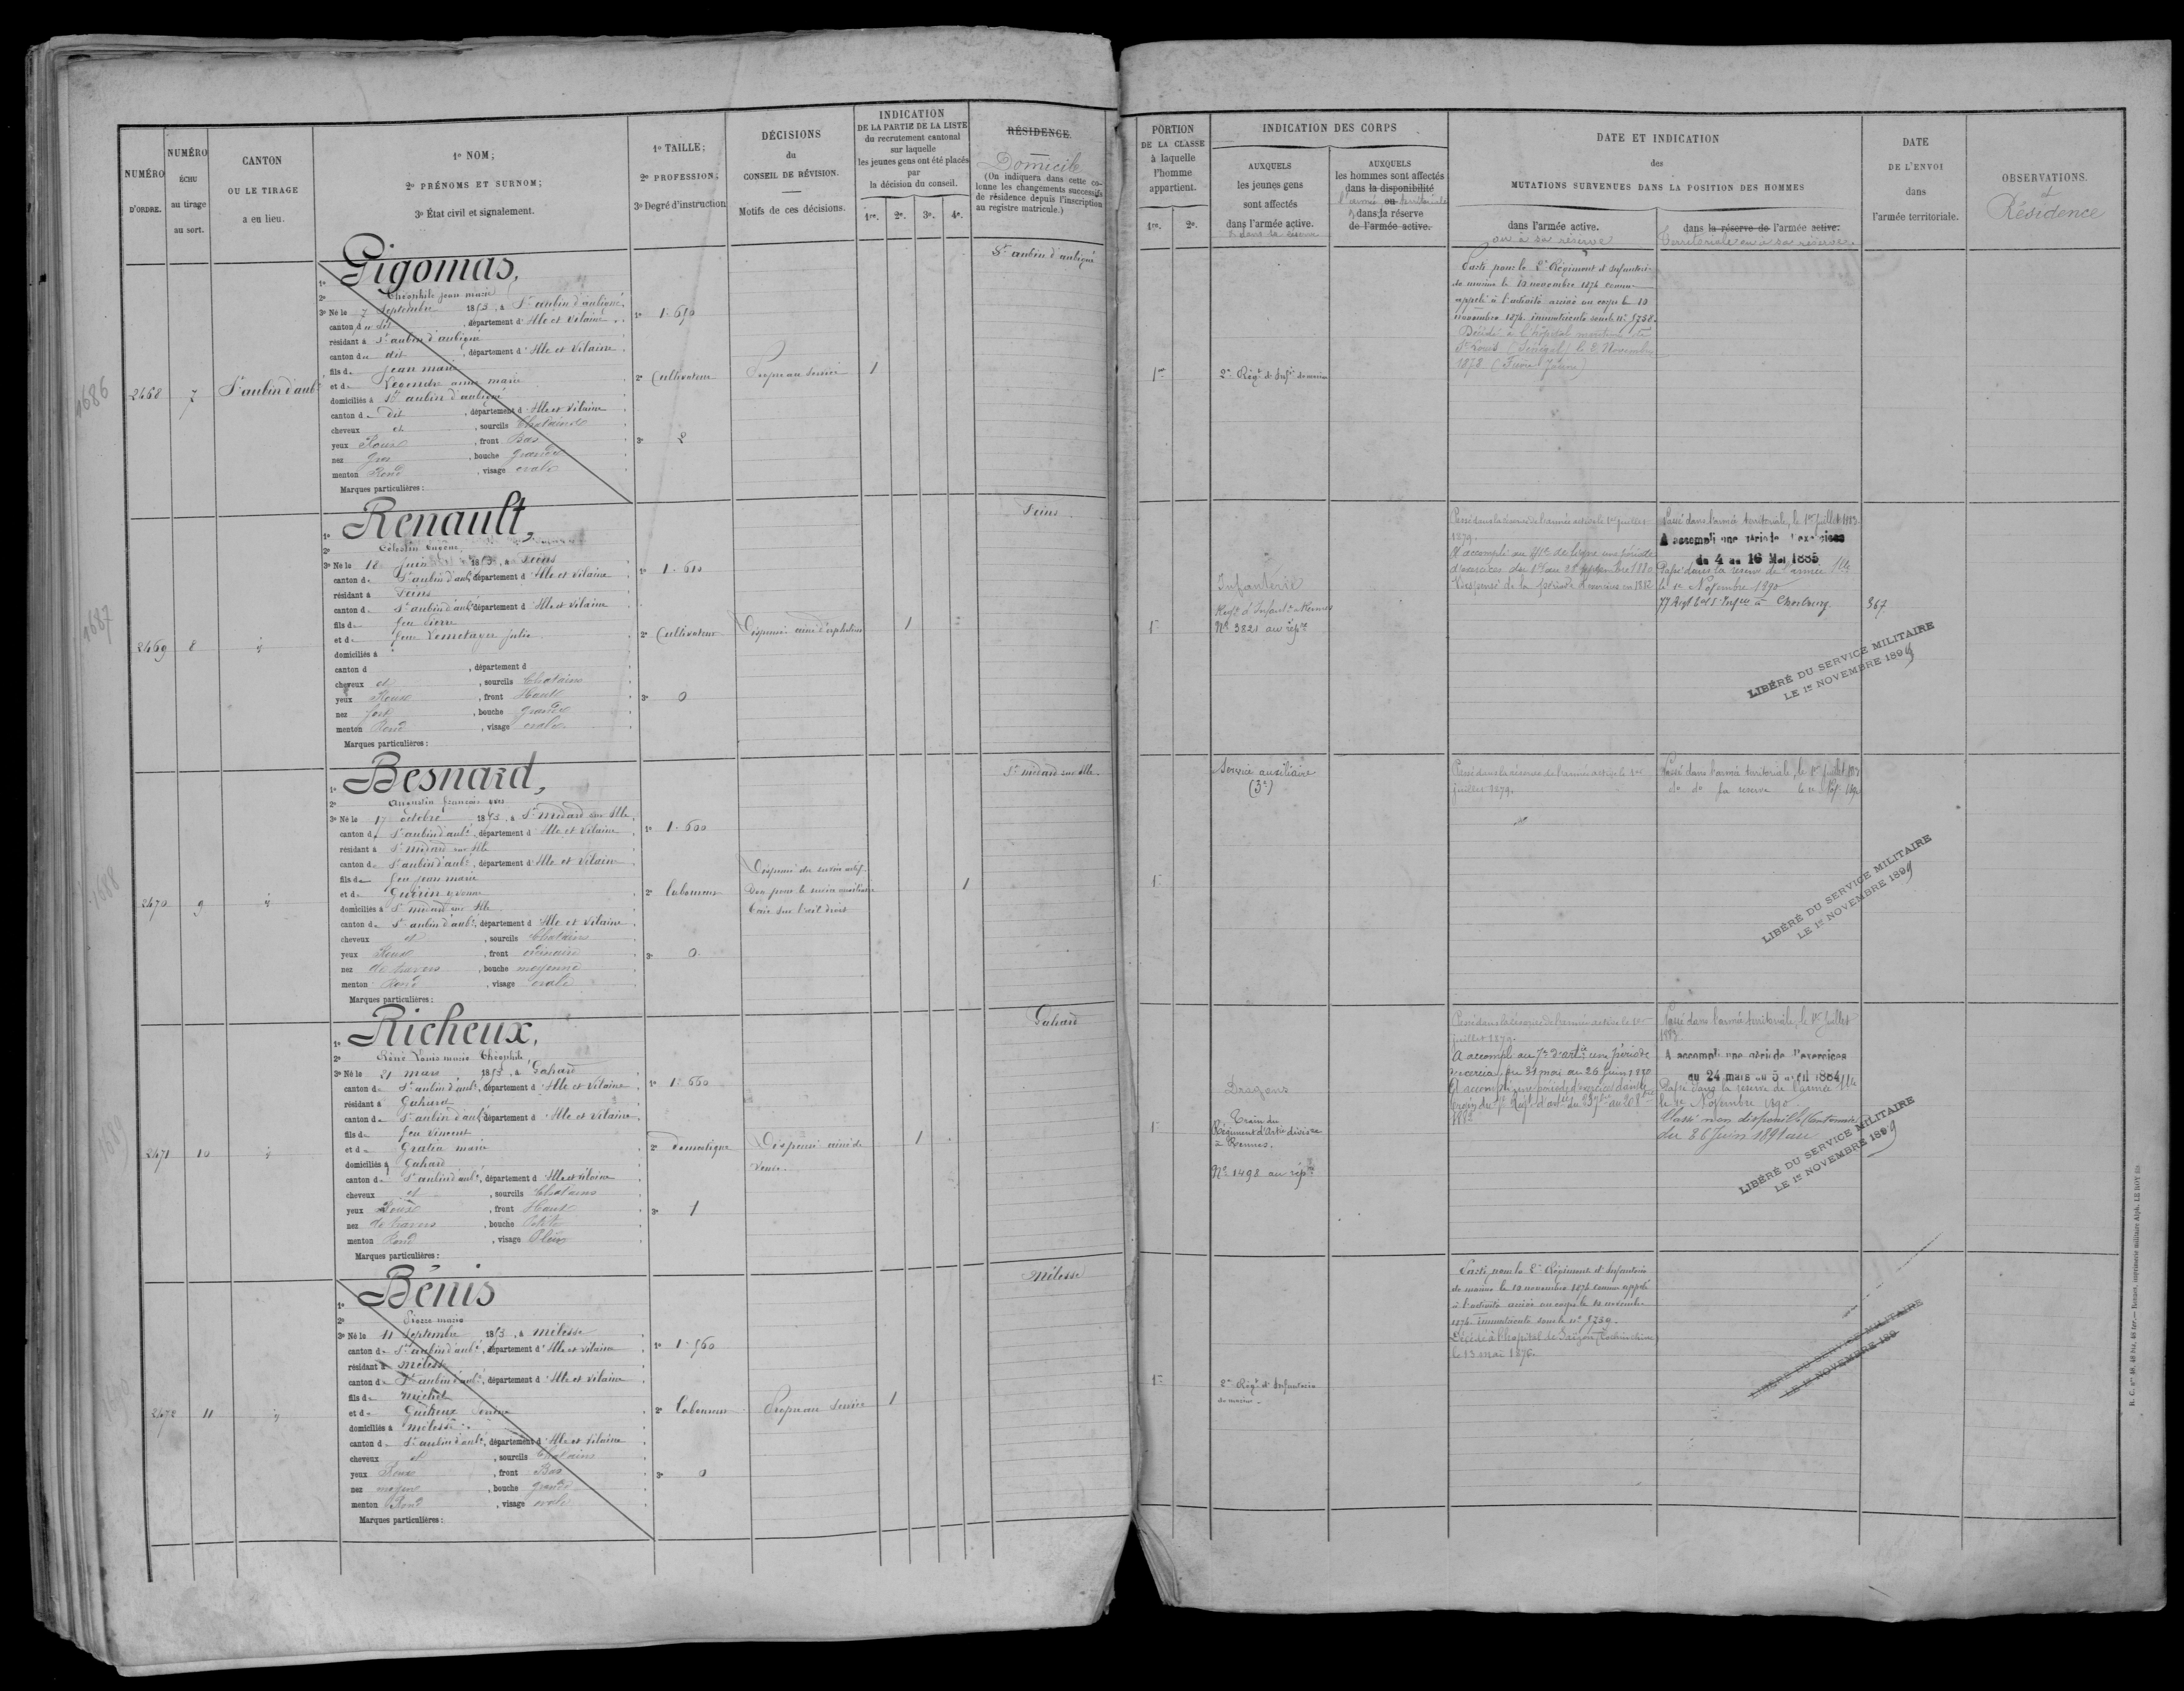 NUMÉRO
D'ORDRE.
NUMÉRO
ÉCHU
au tirage
au sort.
CANTON
OU LE TIRAGE
a eu lieu.
1º NOM;
2º PRÉNOMS ET SURNOM;
3º État civil et signalement.
1º TAILLE;
2º PROFESSION;
3º Degré d'instruction
DÉCISIONS
du
CONSEIL DE RÉVISION.
Motifs de ces décisions.
INDICATION
DE LA PARTIE DE LA LISTE
du recrutement cantonal
sur laquelle
les jeunes gens ont été placés
par
la décision du conseil.
1re. 2e. 3e. 4e.
RÉSIDENCE.
Domicile
(On indiquera dans cette co-
lonne les changements successifs
de résidence depuis l'inscription
au registre matricule.)
PORTION
DE LA CLASSE
à laquelle
l'homme
appartient.
1re. 2e.
INDICATION DES CORPS
AUXQUELS
les jeunes gens
sont affectés
dans l'armée active.
& dans la réserve
AUXQUELS
les hommes sont affectés
dans la disponibilité
l'armée ou territoriale
& dans la réserve
de l'armée active.
DATE ET INDICATION
des
MUTATIONS SURVENUES DANS LA POSITION DES HOMMES
dans l'armée active.
ou à sa réserve
dans la réserve de l'armée active.
Territoriale ou à sa réserve.
DATE
DE L'ENVOI
dans
l'armée territoriale.
OBSERVATIONS.
et
Résidence
1686
2468 7 St aubin d'aubé
1º Gigomas,
2º Théophile jean marie
3º Né le 7 Septembre 1853, à St aubin d'aubigné
canton du dit, département d'Ille et Vilaine
résidant à St aubin d'aubigné
canton du dit, département d'Ille et Vilaine
fils de jean marie
et de Legendre anne marie
domiciliés à St aubin d'aubigné
canton de dit, département d'Ille et Vilaine
cheveux et, sourcils Chatains
yeux Roux, front Bas
nez gros, bouche grande
menton Rond, visage ovale
Marques particulières :
1º 1. 690
2º Cultivateur
3º 2
Propre au service
1
St aubin d'aubigné
1re
2e Régt d'Infie de marine
Parti pour le 2e Régiment d'Infanterie
de marine le 10 novembre 1874 comme
appelé à l'activité arrivé au corps le 10
novembre 1874. immatriculé sous le nº 5738.
Décédé à l'hôpital maritime de
St Louis (Sénégal) le 6 Novembre
1878 (Fièvre Jaune)
1687
2469 8 id
1º Renault,
2º Célestin Eugène
3º Né le 18 juin 1853, à Feins
canton de St aubin d'aubé, département d'Ille et Vilaine
résidant à Feins
canton de St aubin d'aubé, département d'Ille et Vilaine
fils de feu Pierre
et de feue Lemetayer Julie
domiciliés à
canton d , département d
cheveux et, sourcils Chatains
yeux Roux, front Haut
nez fort, bouche grande
menton Rond, visage ovale
Marques particulières :
1º 1. 610
2º Cultivateur
3º 0
Dispensé ainé d'orphelins
1
Feins
1re
Infanterie
Régt d'Infantie à Rennes
Nº 3821 au répre
Passé dans la réserve de l'armée active le 1er juillet
1879.
A accompli au 41e de ligne une période
d'exercices du 1er au 28 septembre 1880
Dispensé de la période d'exercices en 1882
Passé dans l'armée territoriale, le 1er Juillet 1883.
A accompli une période d'exercices
du 4 au 16 Mai 1885
Passé dans la réserve de l'armée Tle
le 1er Novembre 1890
77 Regt à Cherbourg
367
LIBÉRÉ DU SERVICE MILITAIRE
LE 1er NOVEMBRE 1899
1688
2470 9 id
1º Besnard,
2º Augustin françois
3º Né le 17 octobre 1853, à St Médard sur Ille
canton de St aubin d'aubé, département d'Ille et Vilaine
résidant à St médard sur Ille
canton de St aubin d'aubé, département d'Ille et Vilaine
fils de feu jean marie
et de Guérin yvonne
domiciliés à St médard sur Ille
canton de St aubin d'aubé, département d'Ille et Vilaine
cheveux et, sourcils Chatains
yeux Roux, front ordinaire
nez de travers, bouche moyenne
menton Rond, visage ovale
Marques particulières :
1º 1. 600
2º Laboureur
3º 0
Dispensé du service actif
Bon pour le service auxiliaire
Taie sur l'œil droit
1
St médard sur Ille
1re
Service auxiliaire
(3e)
Passé dans la réserve de l'armée active le 1er
juillet 1879.
Passé dans l'armée territoriale, le 1er Juillet 1883
do do sa réserve le 1er Nov. 1890
LIBÉRÉ DU SERVICE MILITAIRE
LE 1er NOVEMBRE 1899
1689
2471 10 id
1º Richeux,
2º René Louis marie Théophile
3º Né le 21 mars 1853, à Gahard
canton de St aubin d'aubé, département d'Ille et Vilaine
résidant à Gahard
canton de St aubin d'aubé, département d'Ille et Vilaine
fils de feu Vincent
et de Gratien marie
domiciliés à Gahard
canton de St aubin d'aubé, département d'Ille et Vilaine
cheveux et, sourcils Chatains
yeux Roux, front Haut
nez de travers, bouche Petite
menton Rond, visage Plein
Marques particulières :
1º 1. 660
2º Domestique
3º 1
Dispensé ainé de
Veuve.
1
Gahard
1re
Dragons
Train du
Régiment d'Artie divisre
à Rennes.
Nº 1498 au répre
Passé dans la réserve de l'armée active le 1er
juillet 1879.
A accompli au 7e d'artie une période
d'exercices du 31 mai au 26 Juin 1880
A accompli une période d'exercices dans le
train du 7e Régt d'artie
1882
Passé dans l'armée territoriale, le 1er Juillet
1883.
A accompli une période d'exercices
du 24 mars au 5 avril 1884
Passé dans la réserve de l'armée Tle
le 1er Novembre 1890.
Classé non disponible (Cantonnier)
du 26 Juin 1891 au
LIBÉRÉ DU SERVICE MILITAIRE
LE 1er NOVEMBRE 1899
2472 11 id
1º Bénis
2º Pierre marie
3º Né le 11 Septembre 1853, à Mélesse
canton de St aubin d'aubé, département d'Ille et Vilaine
résidant à Mélesse
canton de St aubin d'aubé, département d'Ille et Vilaine
fils de Michel
et de Guéheux
domiciliés à Mélesse
canton de St aubin d'aubé, département d'Ille et Vilaine
cheveux et, sourcils Chatains
yeux Roux, front Bas
nez moyen, bouche grande
menton Rond, visage ovale
Marques particulières :
1º 1. 560
2º Laboureur
3º 0
Propre au Service
1
Mélesse
1re
2e Régt d'Infanterie
de marine
Parti pour le 2e Régiment d'Infanterie
de marine le 10 novembre 1874 comme appelé
à l'activité arrivé au corps le 10 novembre
1874. immatriculé sous le nº 5739.
Décédé à l'hôpital de Saïgon (Cochinchine)
le 13 mai 1876.
LIBÉRÉ DU SERVICE MILITAIRE
LE 1er NOVEMBRE 189
R. C. nos 48, 48 bis, 48 ter. — Rennes, imprimerie militaire Alph. LE ROY fils